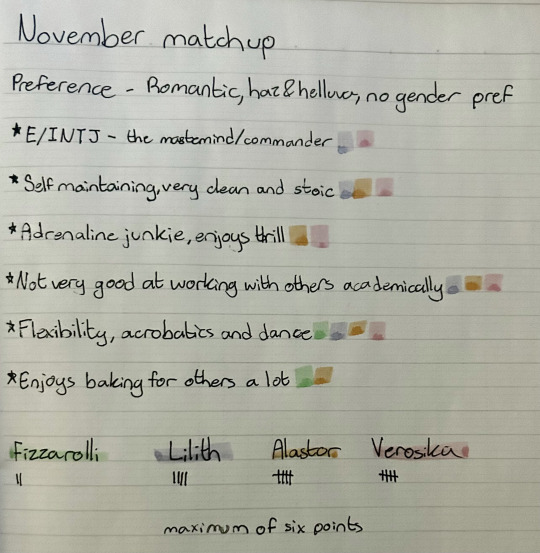 November matchup
Preference - Romantic, haz&helluva, no gender pref
*E/INTJ - the mastemind/commander
*Self maintaining, very clean and stoic
*Adrenaline junkie, enjoys thrill
*Not very good at working with others academically
*Flexibility, acrobatics and dance
*Enjoys baking for others a lot
Fizzarolli Lilith Alastor Verosika
maximum of six points